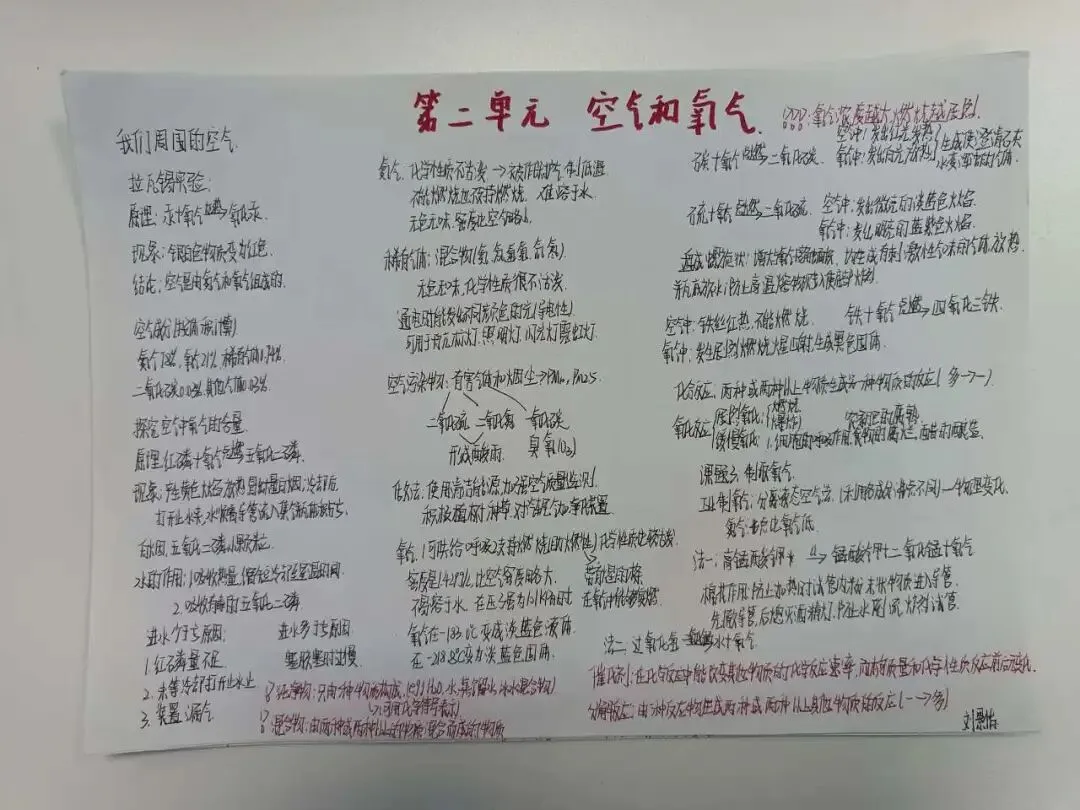 第二单元 空气和氧气
氧气浓度越大,燃烧越剧烈
我们周围的空气
拉瓦锡实验:
原理:汞+氧气 点燃→ 氧化汞
现象:银白色物质变为红色
结论:空气是由氮气和氧气组成的
空气成分(按体积计算)
氮气78%,氧气21%,稀有气体0.94%
二氧化碳0.03%,其他气体0.03%
探究空气中氧气的含量
原理:红磷+氧气 点燃→ 五氧化二磷
现象:产生黄色火焰,放热,冒出大量白烟,冷却后
打开止水夹,水顺着导管流入集气瓶
白烟:五氧化二磷小颗粒
水的作用:1.吸收热量
2.吸收有毒的五氧化二磷
进水少于⅕原因: 进水多于⅕原因:
1.红磷量不足 塞胶塞时过慢
2.未等冷却打开止水夹
3.装置漏气
氮气:化学性质不活泼→制低温
不能燃烧也不支持燃烧.难溶于水.
无色无味,密度比空气略小
稀有气体:混合物(氦、氖、氩、氪、氙、氡)
无色无味,化学性质很不活泼.
通电时能发出不同颜色的光(导电性)
可用于航标灯.照明灯.闪光灯.霓虹灯
空气污染物:有害气体和烟尘→PM10、PM2.5
二氧化硫 二氧化氮 一氧化碳
形成酸雨 臭氧(O3)
做法:使用清洁能源,加强空气质量监测
积极植树、种草
氧气:(可供给呼吸)(支持燃烧)(助燃性)化学性质比较活泼
密度是1.429g/L,比空气密度略大. 带火星的木条
不易溶于水.在压强为101kPa时 在氧气中能够复燃
氧气在-183℃变成淡蓝色液体
在-218.8℃变为淡蓝色固体
纯净物:只由一种物质构成.(例H2O、水、蒸馏水、冰水混合物)
可用化学符号表示
混合物:由两种或两种以上的物质混合而成的物质
碳+氧气 点燃→ 二氧化碳. 空气中:发出红光,放热 生成使澄清石灰
氧气中:发出白光,放热 水变浑浊的气体
硫+氧气 点燃→ 二氧化硫 空气中:发出微弱的淡蓝色火焰
氧气中:发出明亮的蓝紫色火焰.
都生成有刺激性气味的气体,放热
空气中:铁丝红热,不能燃烧. 铁+氧气 点燃→ 四氧化三铁
氧气中:发生剧烈燃烧,火星四射,生成黑色固体
化合反应:两种或两种以上物质生成另一种物质的反应(多→一)
氧化反应 剧烈氧化:(燃烧、爆炸) 农家肥的腐熟
缓慢氧化:1.细胞的呼吸作用,食物的腐烂,酒醋的酿造
课题3 制取氧气
工业制氧气:分离液态空气法.(利用各成分沸点不同)—物理变化
氮气沸点比氧气低
法一:高锰酸钾 △→ 锰酸钾+二氧化锰+氧气
棉花作用:防止加热时试管内粉末状物质进入导管.
先撤导管,后熄灭酒精灯,防止水倒吸,炸裂试管.
法二:过氧化氢 → 水+氧气
催化剂:在化学反应中能改变其他物质的化学反应速率,而本身质量和化学性质反应前后不变.
分解反应:由一种反应物生成两种或两种以上其他物质的反应(一→多)